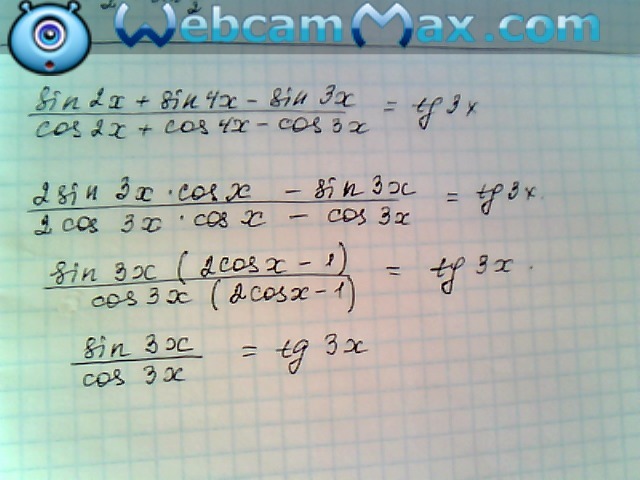 WebcamMax.com
sin 2x + sin 4x - sin 3x
cos 2x + cos 4x - cos 3x = tg 3x
2 sin 3x · cos x - sin 3x
2 cos 3x · cos x - cos 3x = tg 3x.
sin 3x (2cosx - 1)
cos 3x (2cosx - 1) = tg 3x.
sin 3x
cos 3x = tg 3x